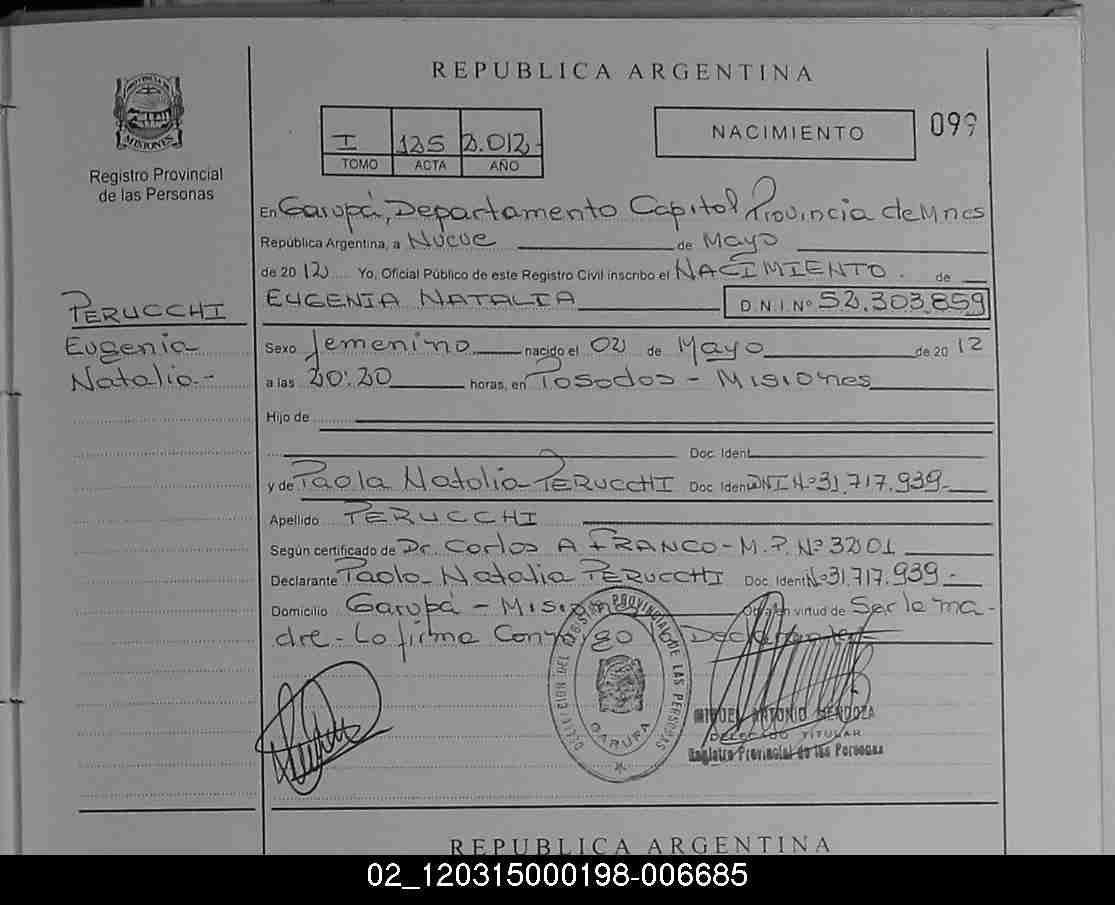 REPUBLICA ARGENTINA
PROVINCIA DE
MISIONES
Registro Provincial
de las Personas
I 125 2.012-
TOMO ACTA AÑO
NACIMIENTO
099
En Garupá, Departamento Capital Provincia de Mnes
República Argentina, a Nueve de Mayo
de 20 12 Yo, Oficial Público de este Registro Civil inscribo el NACIMIENTO. de
EUGENIA NATALIA D.N.I. Nº 52.303.859
PERUCCHI
Eugenia
Natalia.-
Sexo femenino nacido el 02 de Mayo de 20 12
a las 20:20 horas, en Posadas - Misiones
Hijo de
Doc. Ident.
y de Paola Natalia PERUCCHI Doc. Ident. DNI Nº 31.717.939-
Apellido PERUCCHI
Según certificado de Dr. Carlos A FRANCO - M.P. Nº 3201
Declarante Paola Natalia PERUCCHI Doc. Ident. Nº 31.717.939-
Domicilio Garupá - Misiones Obra en virtud de Ser la ma-
dre - La firma Conmigo Declarante
DELEGACION DEL REGISTRO PROVINCIAL DE LAS PERSONAS
GARUPA
MIGUEL ANTONIO MENDOZA
DELEGADO TITULAR
Registro Provincial de las Personas
REPUBLICA ARGENTINA
02_120315000198-006685